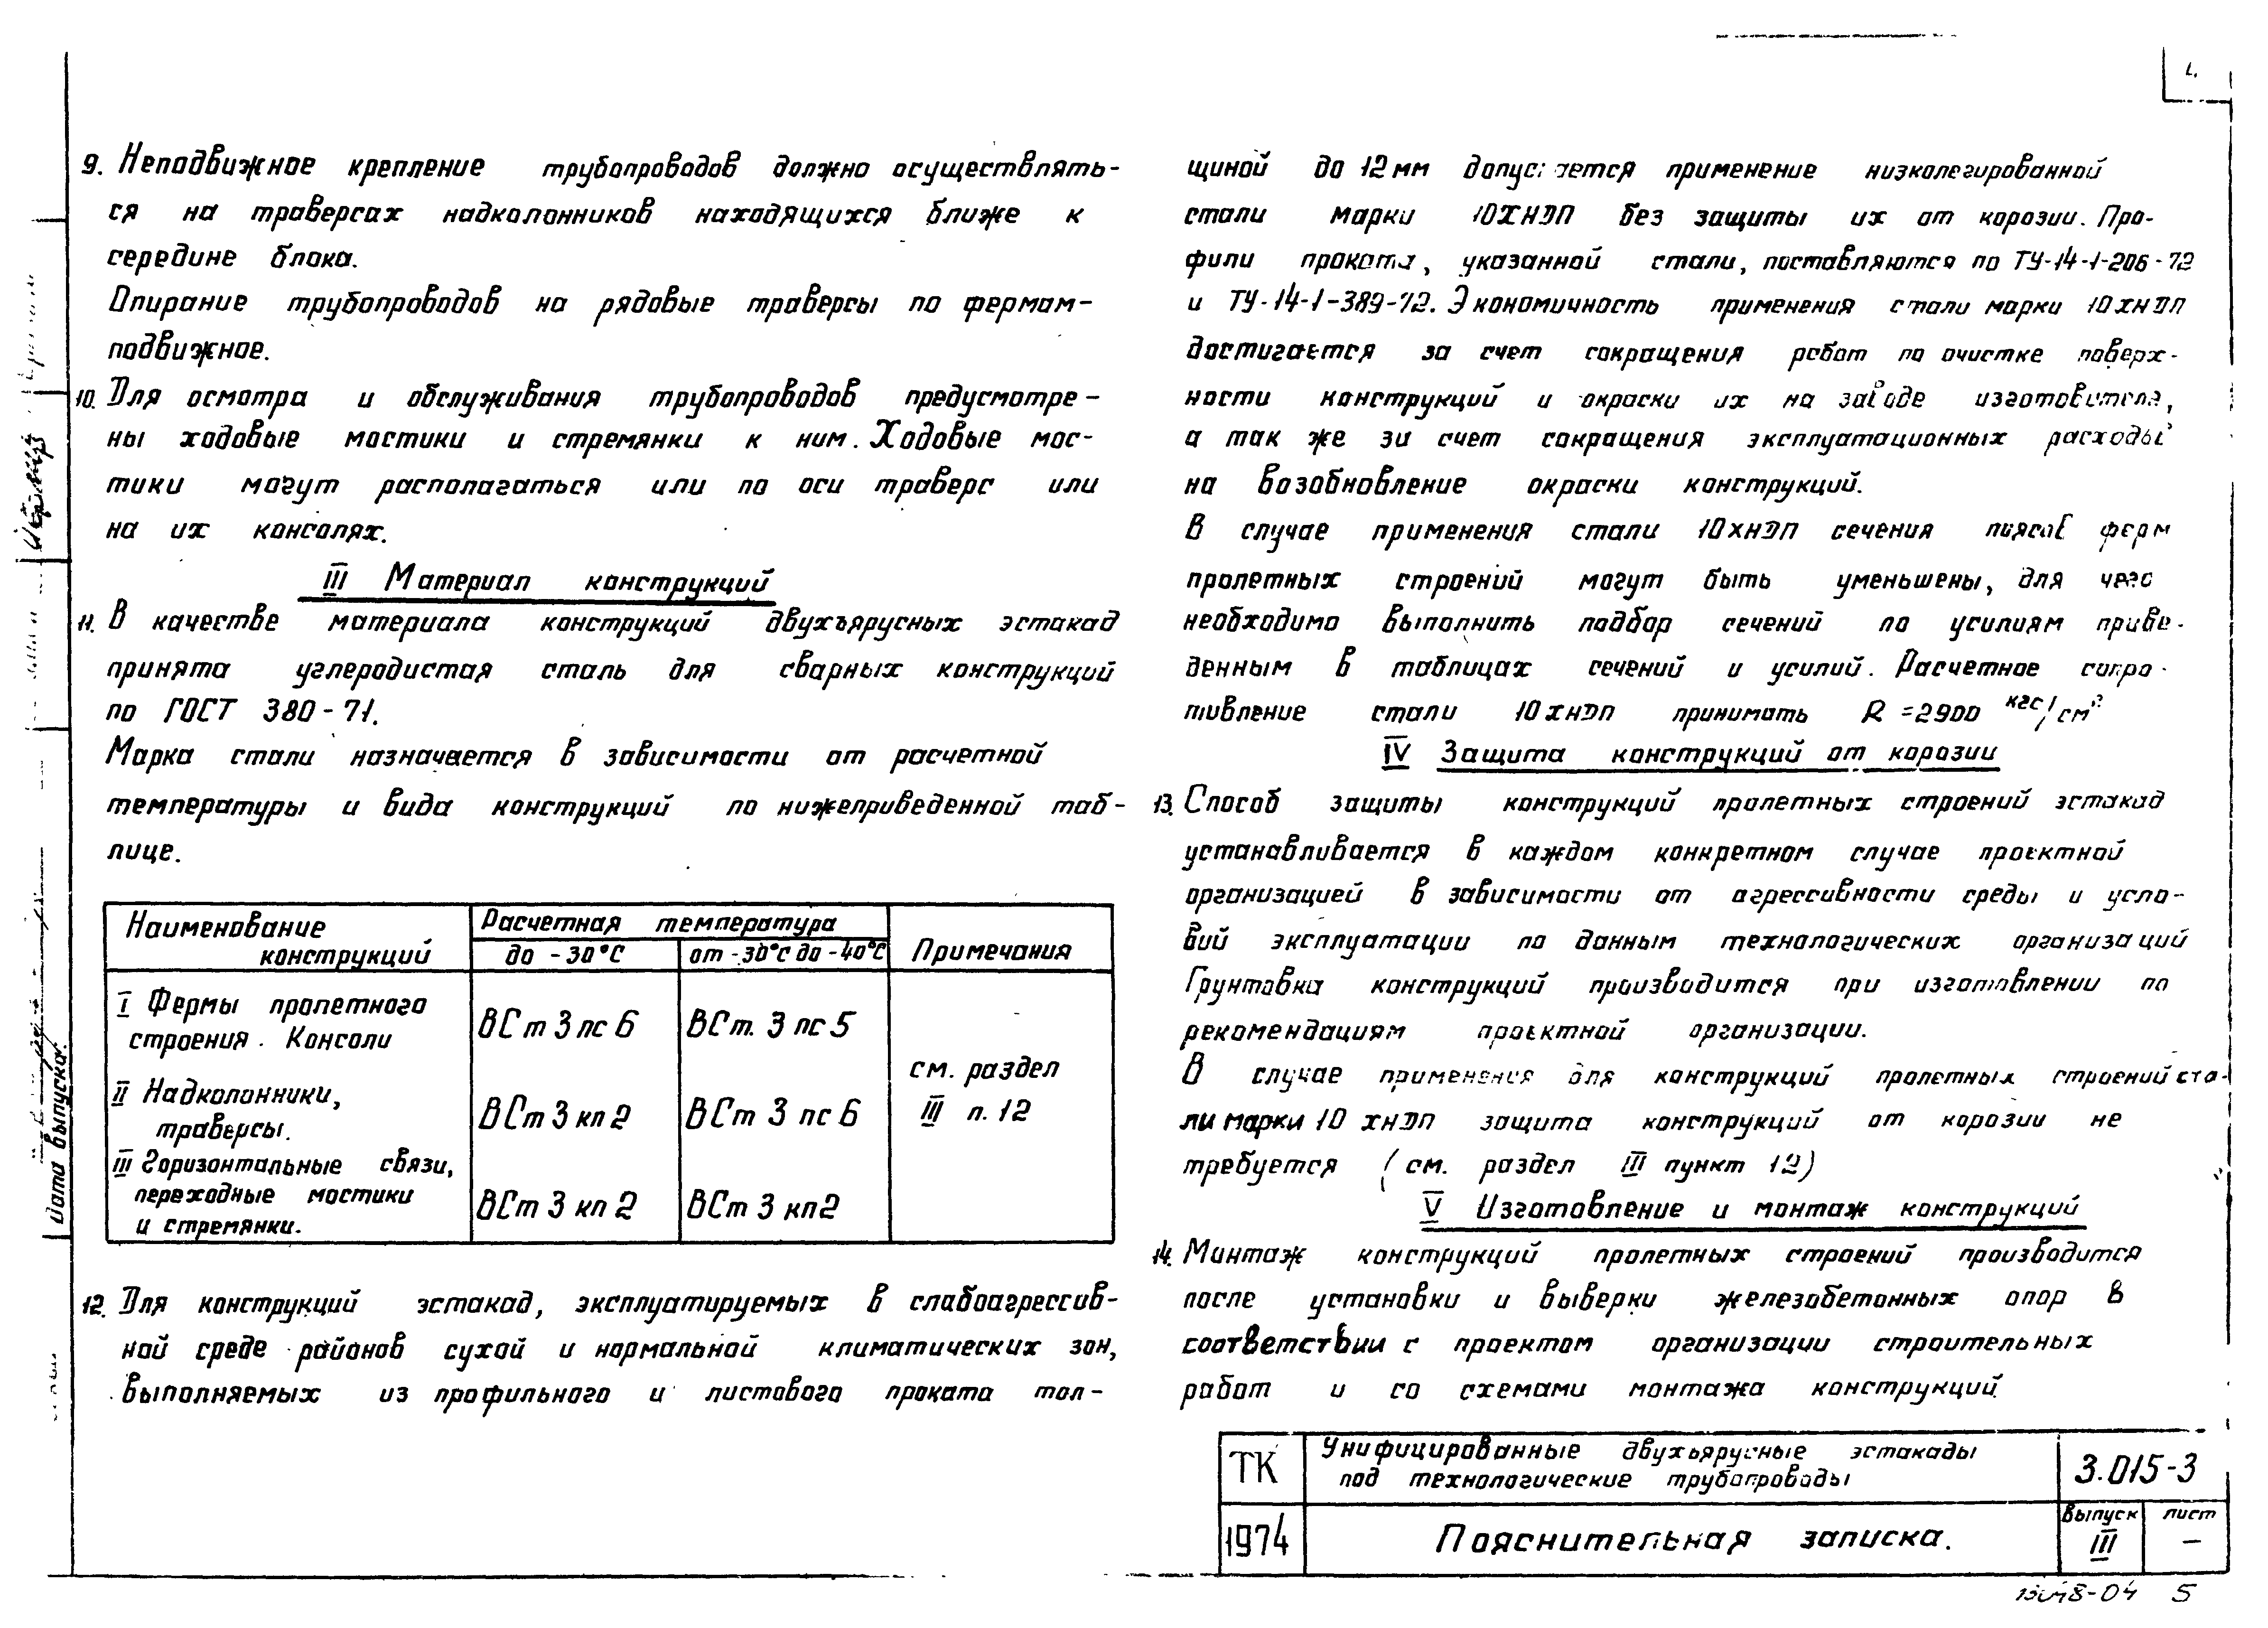 9. Неподвижное крепление трубопроводов должно осуществлять-
ся на траверсах надколонников находящихся ближе к
середине блока.
Опирание трубопроводов на рядовые траверсы по фермам-
подвижное.
10. Для осмотра и обслуживания трубопроводов предусмотре-
ны ходовые мостики и стремянки к ним. Ходовые мос-
тики могут располагаться или по оси траверс или
на их консолях.
III Материал конструкций
11. В качестве материала конструкций двухъярусных эстакад
принята углеродистая сталь для сварных конструкций
по ГОСТ 380-71.
Марка стали назначается в зависимости от расчетной
температуры и вида конструкций по нижеприведенной таб-
лице.
Наименование конструкций
Расчетная температура
до -30°С
от -30°С до -40°С
Примечания
I Фермы пролетного
строения. Консоли
ВСт 3 пс 6
ВСт. 3 пс 5
II Надколонники,
траверсы.
ВСт 3 кп 2
ВСт 3 пс 6
III Горизонтальные связи,
переходные мостики
и стремянки.
ВСт 3 кп 2
ВСт 3 кп2
см. раздел
III п. 12
12. Для конструкций эстакад, эксплуатируемых в слабоагрессив-
ной среде районов сухой и нормальной климатических зон,
выполняемых из профильного и листового проката тол-
щиной до 12 мм допускается применение низколегированной
стали марки 10ХНДП без защиты их от корозии. Про-
фили проката, указанной стали, поставляются по ТУ-14-1-206-72
и ТУ-14-1-389-72. Экономичность применения стали марки 10хндп
достигается за счет сокращения работ по очистке поверх-
ности конструкций и окраски их на заводе изготовителе,
а так же за счет сокращения эксплуатационных расходов
на возобновление окраски конструкций.
В случае применения стали 10хндп сечения поясов ферм
пролетных строений могут быть уменьшены, для чего
необходимо выполнить подбор сечений по усилиям приве-
денным в таблицах сечений и усилий. Расчетное сопро-
тивление стали 10хндп принимать R = 2900 кгс/см²
IV Защита конструкций от корозии
13. Способ защиты конструкций пролетных строений эстакад
устанавливается в каждом конкретном случае проектной
организацией в зависимости от агрессивности среды и усло-
вий эксплуатации по данным технологических организаций
Грунтовка конструкций производится при изготовлении по
рекомендациям проектной организации.
В случае применения для конструкций пролетных строений ста-
ли марки 10 хндп защита конструкций от корозии не
требуется (см. раздел III пункт 12)
V Изготовление и монтаж конструкций
14. Монтаж конструкций пролетных строений производится
после установки и выверки железобетонных опор в
соответствии с проектом организации строительных
работ и со схемами монтажа конструкций.
ТК
Унифицированные двухъярусные эстакады
под технологические трубопроводы
3.015-3
1974
Пояснительная записка.
выпуск
III
лист
—
13048-04 5
Дата выпуска: